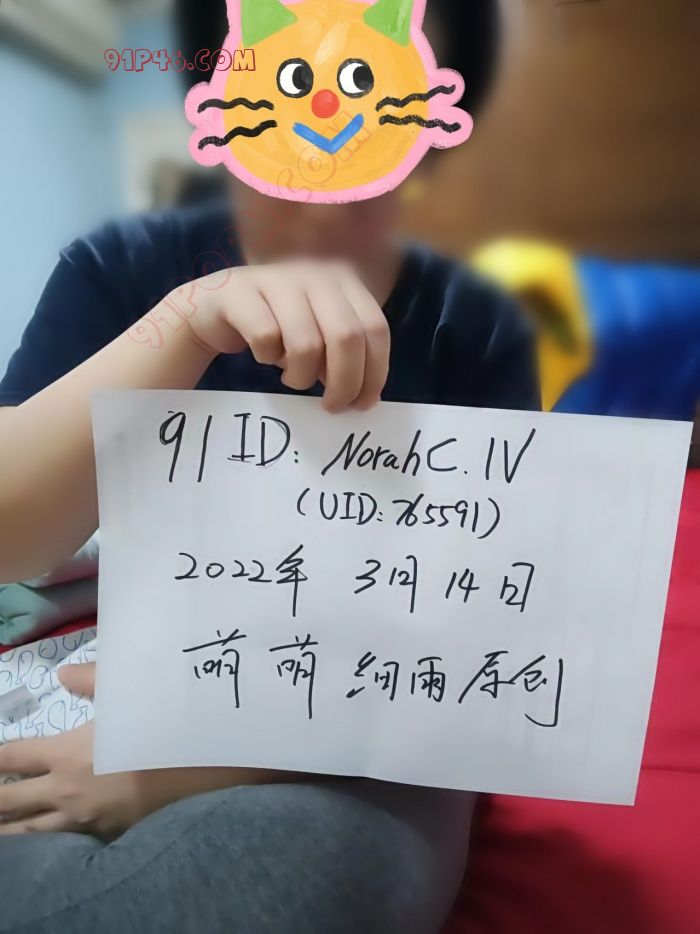 91P46.COM
91PORN.COM
91 ID: NorahC.IV
(UID: 765591)
2022年 3月 14日
萌萌细雨原创